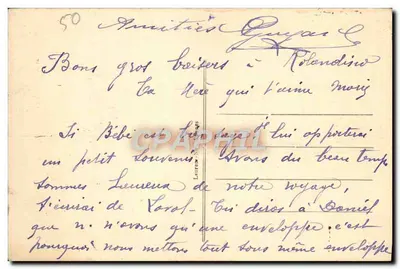 50
Amitiés
Bons gros baisers à Rolandino
Ta Mère qui t'aime
Si Bébé est bien lui apporterai
un petit souvenir. Avons du beau temps
sommes heureux de notre voyage,
t'écrirai de Laval. Tu diras à Daniel
que n. n'avons qu'une enveloppe c'est
pourquoi nous mettons tout sous même enveloppe